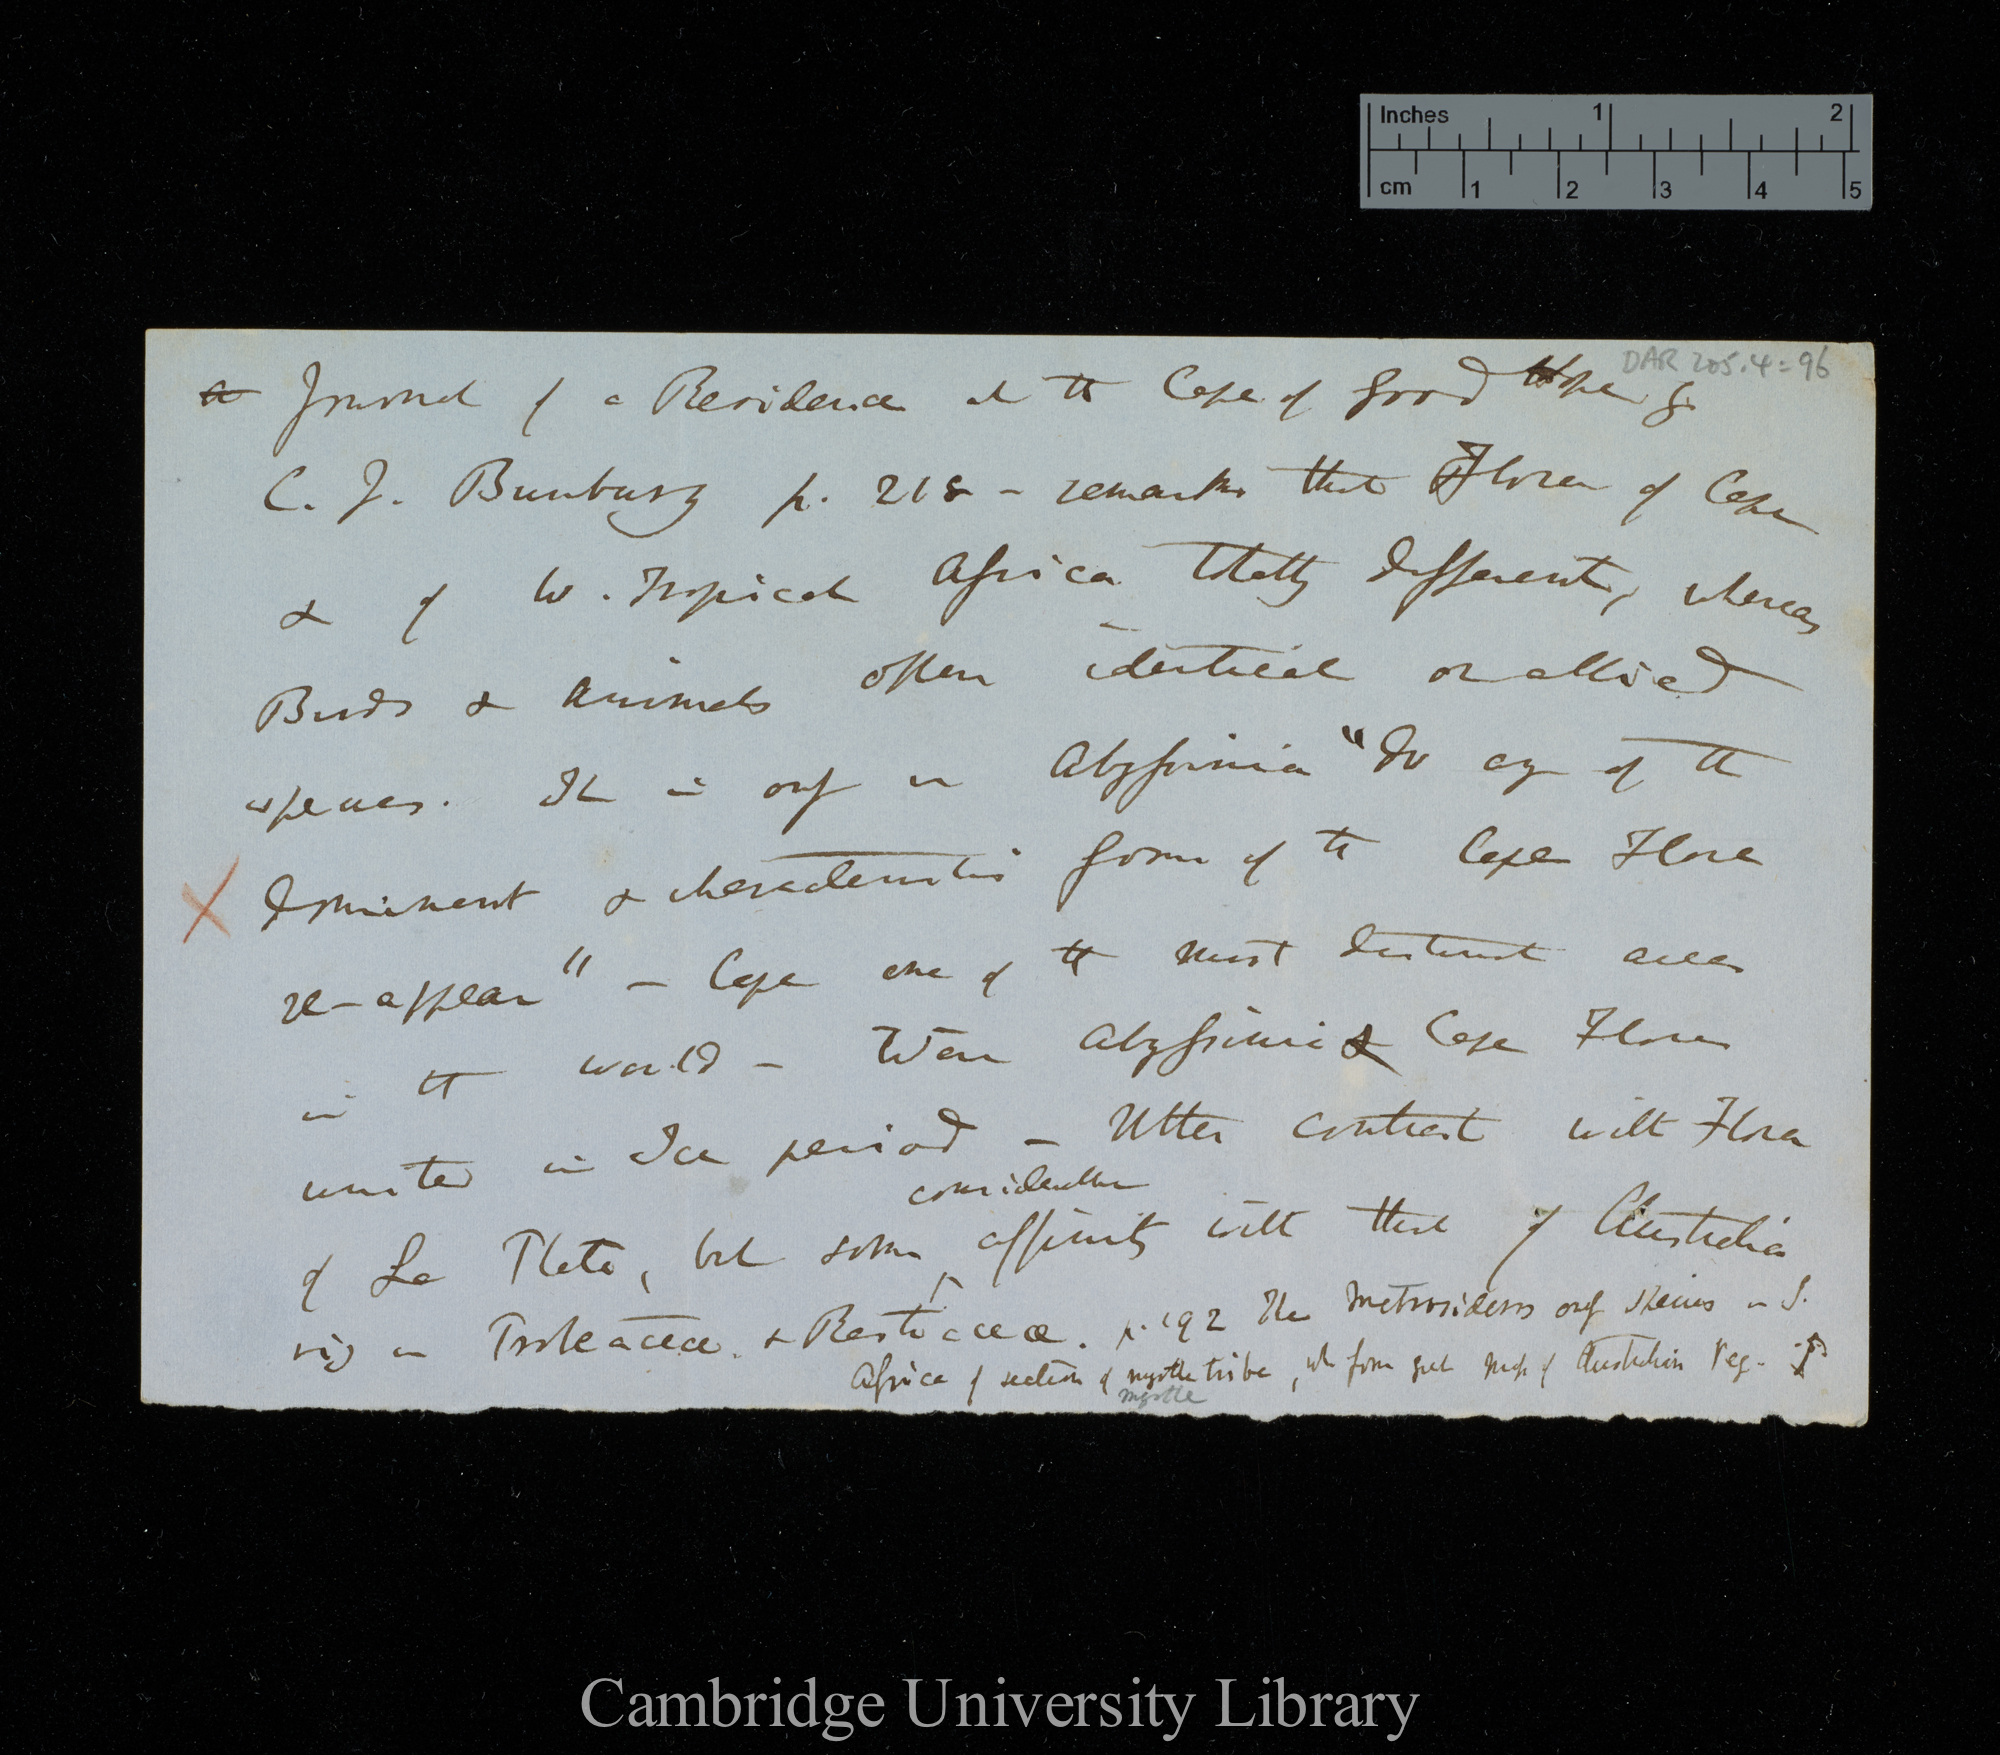 Inches 1 2
cm 1 2 3 4 5
DAR 205.4:96
Journal of a Residence at the Cape of Good Hope by
C. J. Bunbury p. 218 – remarks that Flora of Cape
& of W. Tropical Africa totally different, whereas
Birds & animals often identical or allied
species. It is only in Abyssinia "do any of the
dominant & characteristic forms of the Cape Flora
re-appear" – Cape one of the most distinct areas
in the world – Were Abyssinia & Cape Flora
united in Ice period – Utter contrast with Flora
considerable
of La Plata, but some affinity with that of Australia
viz in Proteaceæ. & Restiaceæ. p. 192 The Metrosideros only species in S.
Africa of section of myrtle tribe, wh form great part of Australian Veg.
myrtle
Cambridge University Library